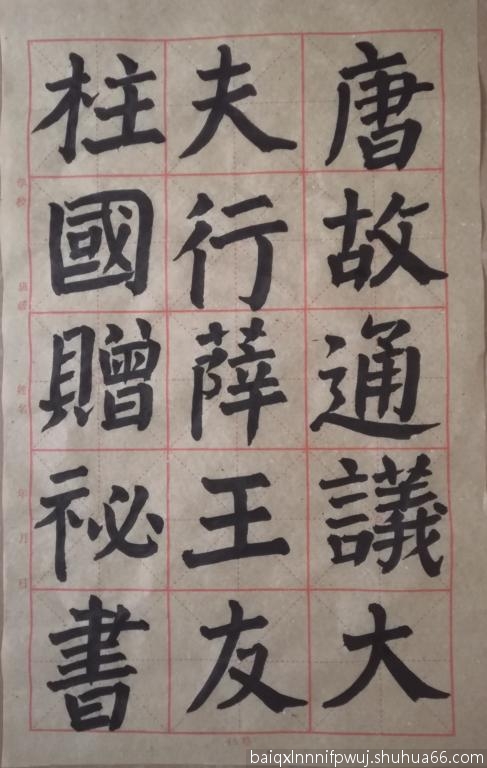 唐故通議大
夫行薛王友
柱國贈祕書
學校
班級
姓名
年月日
baiqxlnnnifpwuj.shuhua66.com